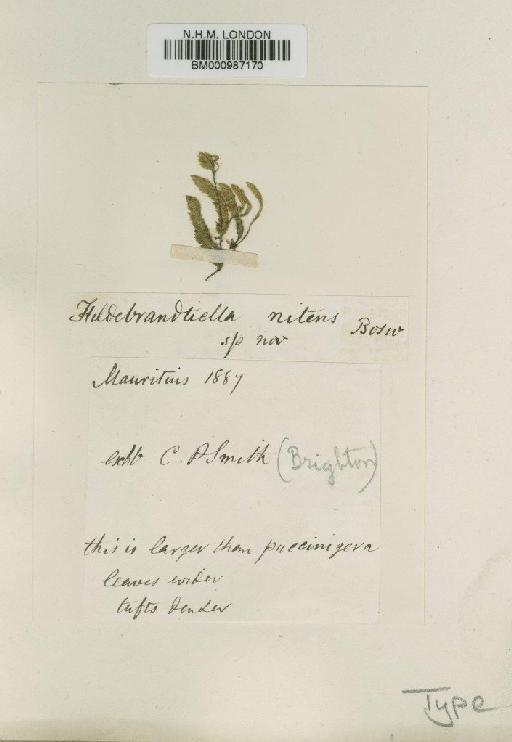 N.H.M. LONDON
BM000987170
Hildebrandtiella nitens Bosw
sp nov
Mauritius 1887
C. Smith (Brighton)
this is larger than puccinigera
leaves wider
tufts
Type